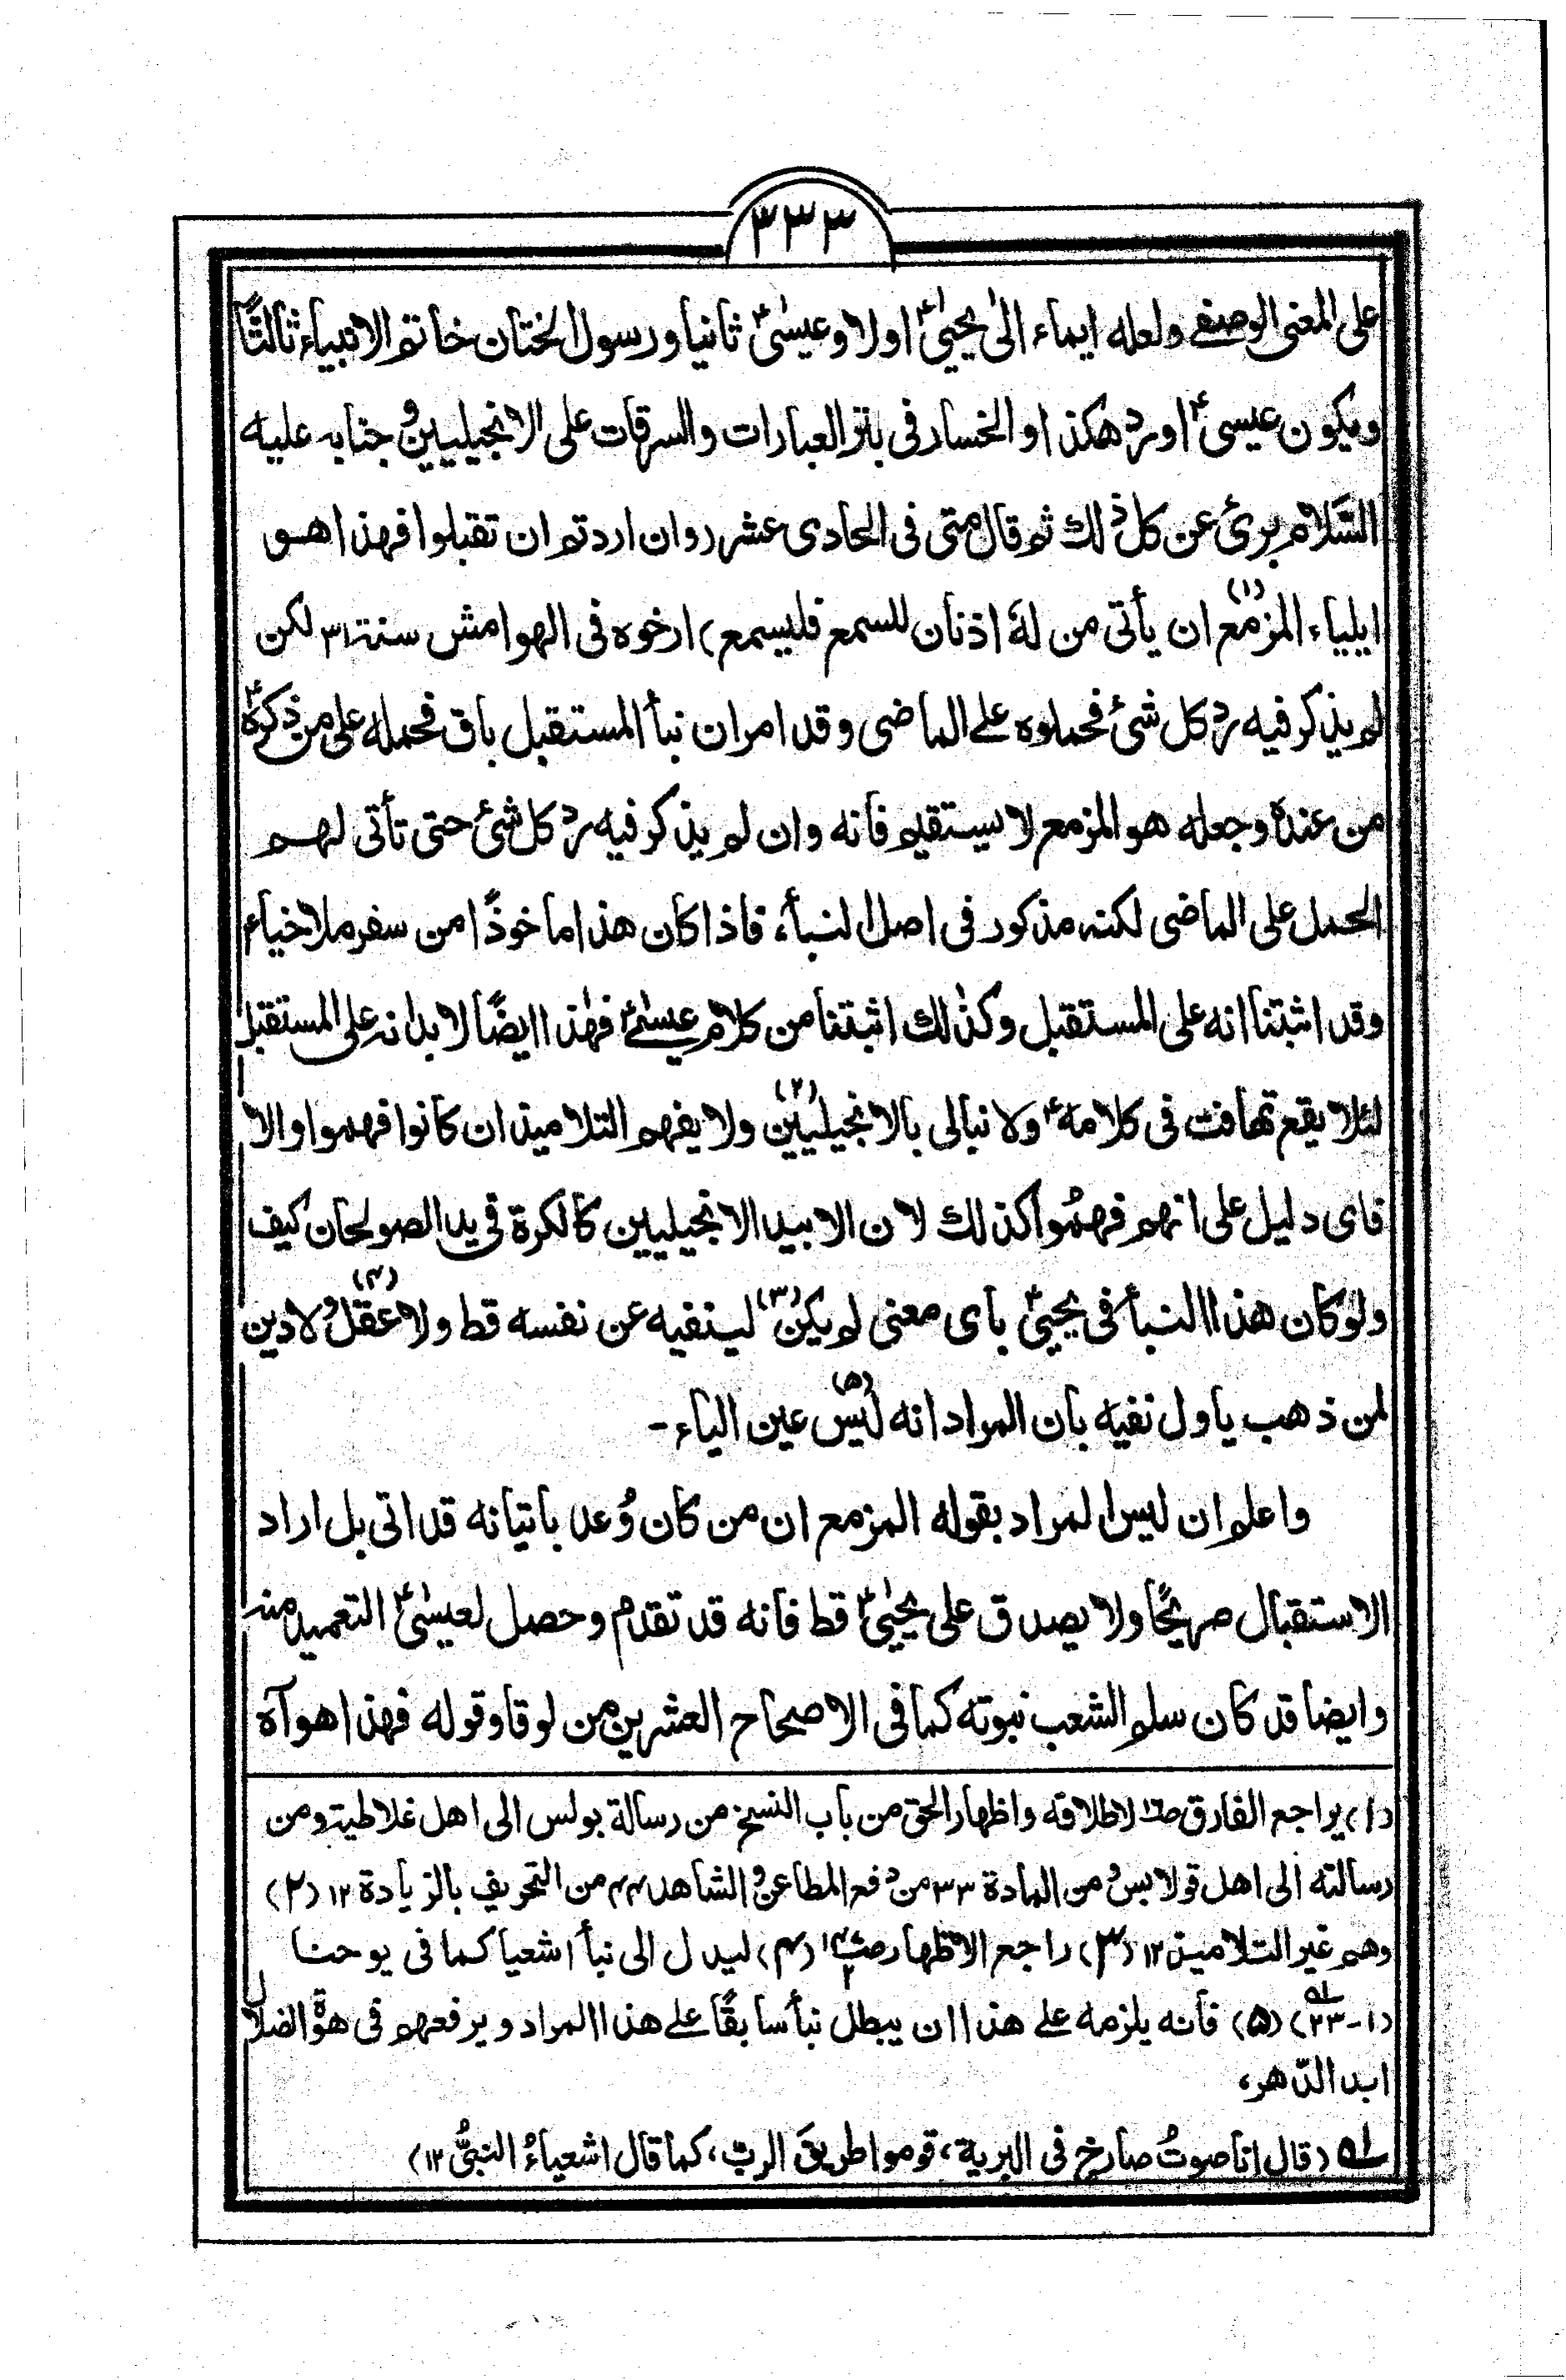 ٣٣٣
على المعنى الوصفى ولعله ايماء الىٰ يحيىٰؑ اولا وعيسىٰؑ ثانيا ورسول الختان خاتم الانبياء ثالثًا
ويكون عيسىؑ اورد هكذا والخسار فى بتر العبارات والسرقات على الانجيليين و جنابه عليه
السَّلام برئ عن كل ذلك ثم قال متى فى الحادى عشر (وان اردتم ان تقبلوا فهذا هو
ايلياء المزمع (١) ان يأتى من لهٗ اذنان للسمع فليسمع) ارخوه فى الهوامش سنة ٣١ لكن
لم يذكر فيه رد كل شئ فحملوه على الماضى وقد امر ان نبأ المستقبل باق فحمله على من ذكرهٗ
من عندهٗ وجعله هو المزمع لا يستقيم فانه وان لم يذكر فيه رد كل شئ حتى تأتى لهم
الحمل على الماضى لكنه مذكور فى اصل النبأ، فاذا كان هذا ماخوذًا من سفر ملاخياء
وقد اثبتنا انه على المستقبل وكذٰلك اثبتنا من كلام عيسىٰؑ فهٰذا ايضًا لا بد انه على المستقبل
لئلا يقع تهافت فى كلامهؑ ولا نبالى بالانجيليين (٢) ولا يفهم التلاميذ ان كانوا فهموا والا
فاى دليل على انهم فهمُوا كذلك لان الا بيد الانجيليين كالكرة فى يد الصولجان كيف
ولو كان هذا النبأ فى يحيىٰؑ باى معنى لم يكن (٣) لينفيه عن نفسه قط ولا عقل (٤) ولا دين
لمن ذهب ياول نفيه بان المراد انه ليس (٥) عين الياء -
واعلم ان ليس المراد بقوله المزمع ان من كان وُعد باتيانه قد اتى بل اراد
الاستقبال صريحًا ولا يصدق على يحيىٰؑ قط فانه قد تقدم وحصل لعيسىٰؑ التعميد منه
وايضا قد كان سلم الشعب نبوته كما فى الاصحاح العشرين من لوقا وقوله فهذا هو آه
(١) يراجع الفارق ص لاطلاقه واظهار الحق من باب النسخ من رسالة بولس الى اهل غلاطية ومن
رسالته الى اهل قولابس و من المادة ٣٣ من دفع المطاعن و الشاهد ٤٤ من التحريف بالزيادة ١٢ (٢)
وهم غير التلاميذ ١٢ (٣) راجع الاظهار (٤) ليدل الى نبأ اشعيا كما فى يوحنا
(١-٢٣) (٥) فانه يلزمه على هذا ان يبطل نبأ سابقًا على هذا المراد ويرفعهم فى هوَّة الضلال
ابد الدّهر،
لـه (قال انا صوتُ صارخ فى البرية، قوموا طريقَ الربّ، كما قال اشعياءُ النبىُّ ١٢)